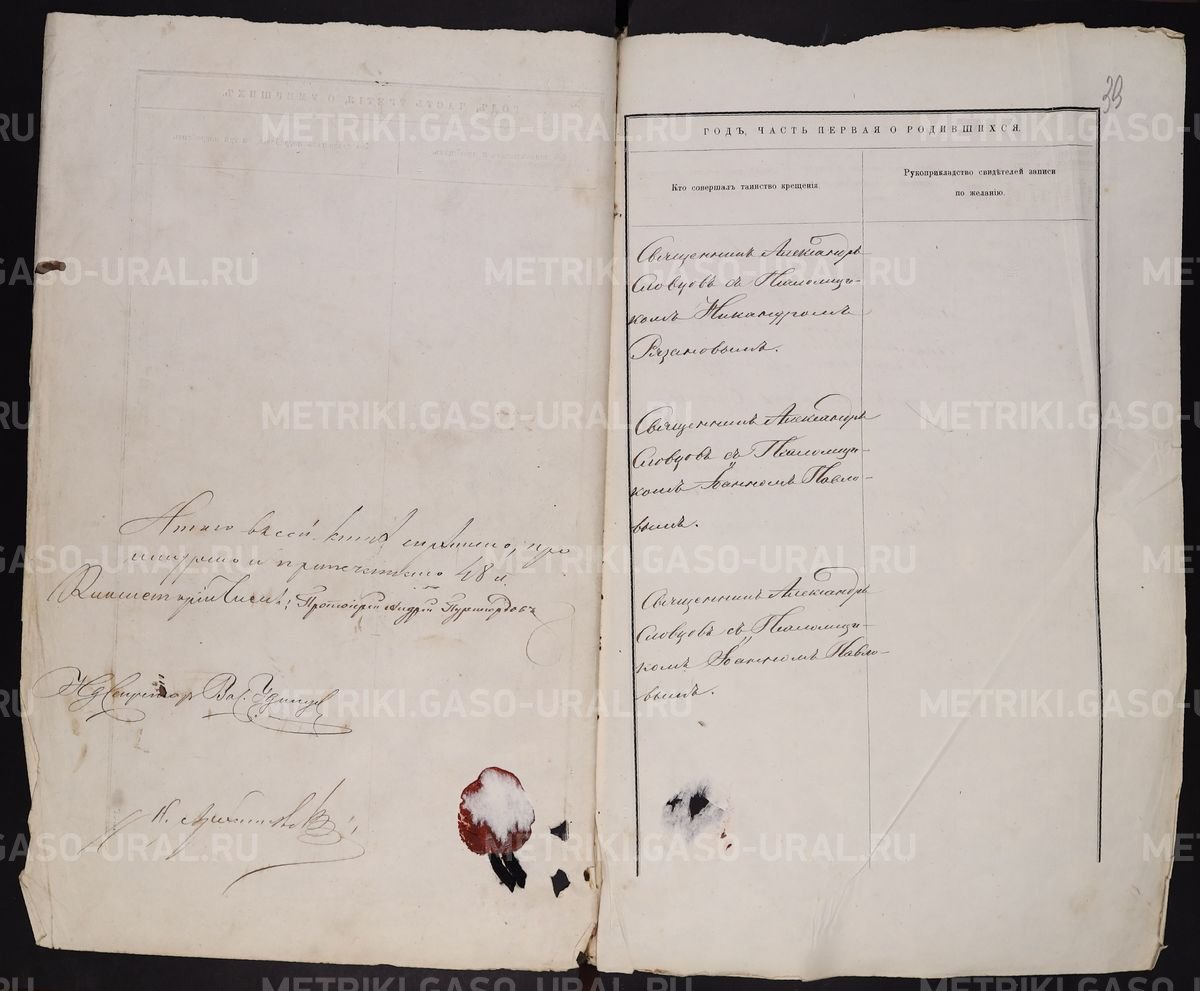 А всего въ сей книгѣ скрѣплено, про
шнуровано и припечатано 48 л.
Консисторіи Членъ: Протоіерей Андрей
Секретарь
39
ГОДЪ, ЧАСТЬ ПЕРВАЯ О РОДИВШИХСЯ.
Кто совершалъ таинство крещенія.
Рукоприкладство свидѣтелей записи
по желанію.
Священникъ Александръ
Словцовъ съ Псаломщи-
комъ Никандромъ
Рязановымъ.
Священникъ Александръ
Словцовъ съ Псаломщи-
комъ Іоанномъ Павло-
вымъ.
Священникъ Александръ
Словцовъ съ Псаломщи-
комъ Іоанномъ Павло-
вымъ.
METRIKI.GASO-URAL.RU